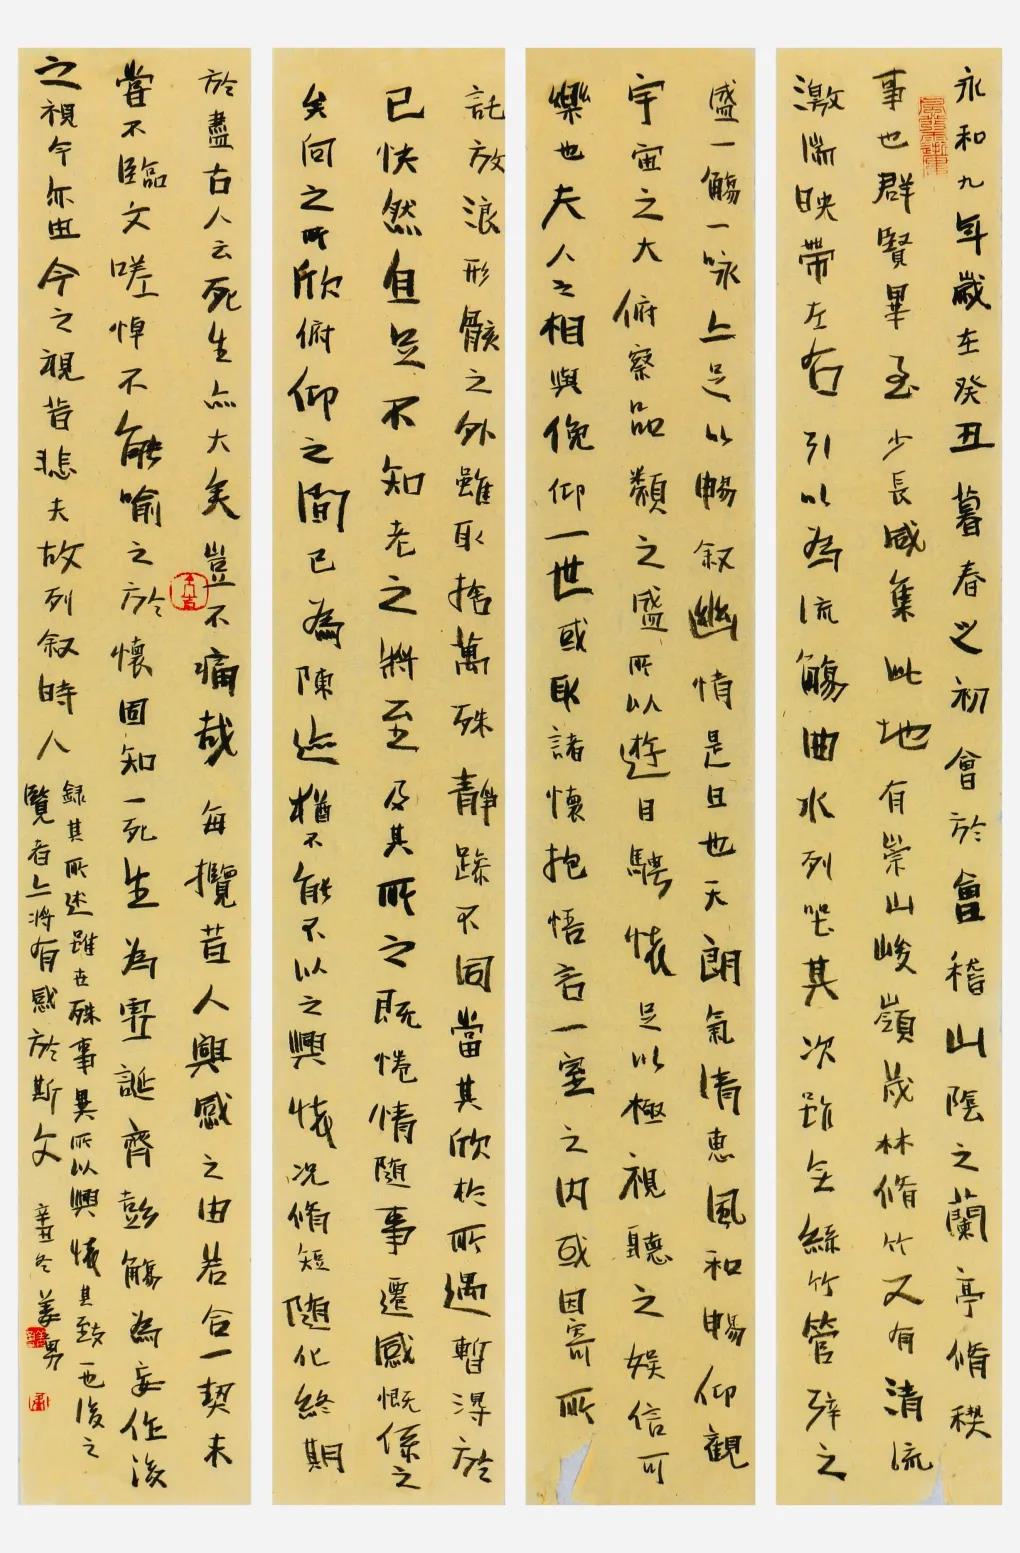 永和九年歲在癸丑暮春之初會於會稽山陰之蘭亭脩稧
事也群賢畢至少長咸集此地有崇山峻嶺茂林脩竹又有清流
激湍映帶左右引以為流觴曲水列坐其次雖無絲竹管弦之
盛一觴一詠亦足以暢叙幽情是日也天朗氣清惠風和暢仰觀
宇宙之大俯察品類之盛所以遊目騁懷足以極視聽之娛信可
樂也夫人之相與俛仰一世或取諸懷抱悟言一室之內或因寄所
託放浪形骸之外雖取捨萬殊靜躁不同當其欣於所遇暫得於
已快然自足不知老之將至及其所之既惓情隨事遷感慨係之
矣向之所欣俯仰之間已為陳迹猶不能不以之興懷況脩短隨化終期
於盡古人云死生亦大矣豈不痛哉每攬昔人興感之由若合一契未
嘗不臨文嗟悼不能喻之於懷固知一死生為虛誕齊彭觴為妄作後
之視今亦由今之視昔悲夫故列叙時人
錄其所述雖世殊事異所以興懷其致一也後之
覽者亦將有感於斯文
辛丑冬 姜勇